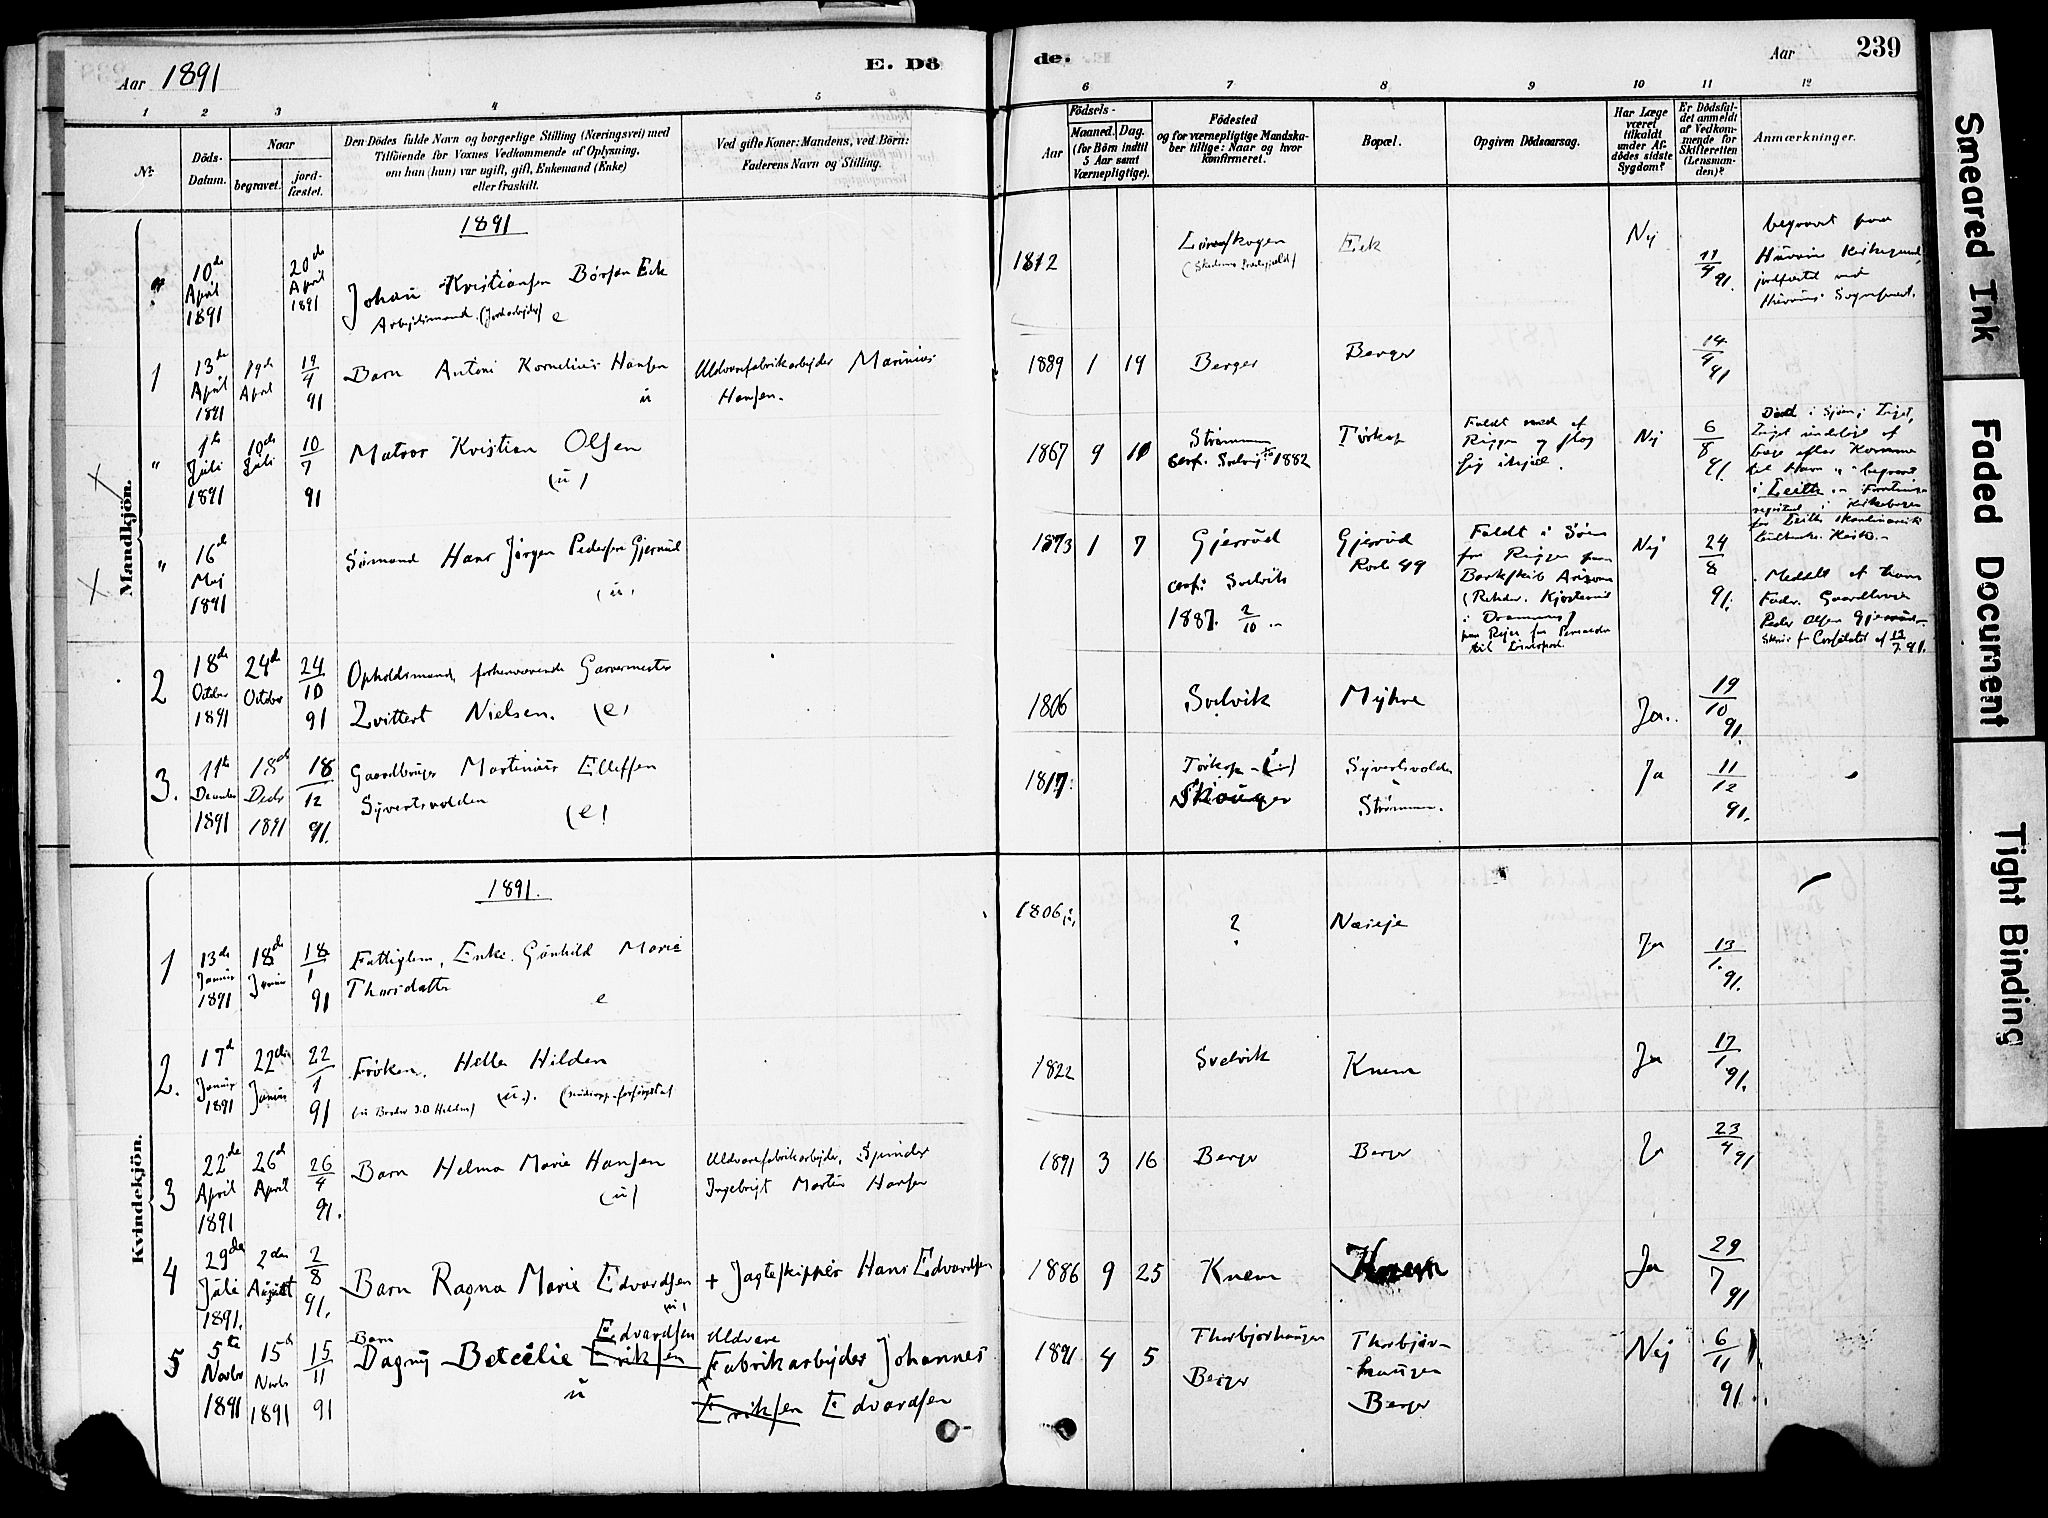 Aar 1891
E. Dö
de.
Aar
239
1 2 3 4 5
6 7 8 9 10 11 12
№
Döds-
Datum.
Naar
begravet.
jord-
fæstet.
Den Dödes fulde Navn og borgerlige Stilling (Næringsvei) med
Tilföiende for Voxnes Vedkommende af Oplysning,
om han (hun) var ugift, gift, Enkemand (Enke)
eller fraskilt.
Ved gifte Koner: Mandens, ved Börn:
Faderens Navn og Stilling.
Födsels-
Aar
Maaned.
Dag.
(for Börn indtil
5 Aar samt
Værnepligtige).
Födested
og for værnepligtige Mandska-
ber tillige: Naar og hvor
konfirmeret.
Bopæl.
Opgiven Dödsaarsag.
Har Læge
været
tilkaldt
under Af-
dödes sidste
Sygdom?
Er Dödsfal-
det anmeldt
af Vedkom-
mende for
Skifteretten
(Lensman-
den)?
Anmærkninger.
Mandkjön.
1891
10de
April
1891
20de
April
1891
Johan Kristiansen Börsen Eek
Arbeidsmand (Jordarbeider) e
1812
Eek
Nej
11
4
91.
begravet paa
1
13de
April
1891
19de
April
19
4
91
Barn Antoni Kornelius Hansen
u
Uldvarefabrikarbejder Marinius
Hansen.
1889 1 19
Berger
Berger
14
4
91
"
1ste
Juli
1891
10de
Juli
10
7
91
Matros Kristian Olsen
(u)
1867 9 10
Strömmen
conf. Svelvig 1882
Törkop
Faldt ned af
Riggen og slog
sig ihjel.
Nej
6
8
91.
i Leith
"
16d
Maj
1891
Sömand Hans Jörgen Pedersen Gjerud
(u)
1873 1 7
Gjerröd
conf. Svelvik
1887. 2/10
Gjeröd
Faldt i Söen
fra Riggen paa
Barkskib Arizona
i Drammen)
Nej
24
8
91.
Meddelt af hans
Fader. Gaardbruger
Peder Olsen
2
18de
October
1891
24de
October
24
10
91
Opholdsmand, forhenværende Garvermester
Zvittert Nielsen. (e)
1806
Svelvik
Myhre
Ja.
19
10
91.
3.
11te
December
1891
18de
Decbr
1891
18
12
91.
Gaardbruger Martinius Ellefsen
Syvertsvolden
(e)
1817.
Törkop
Skouger
Syvertsvolden
Strömmen.
Ja
11
12
91.
Kvindekjön.
1891.
1
13de
Januar
1891
18de
Januar
18
1
91
Fattiglem, Enke. Gunhild Marie
Thorsdatter
e
1806
?
Nærsje
Ja
13
1.
91.
2.
17d
Januar
1891
22den
Januar
22
1
91
Fröken. Helle Hilden
(u).
1822
Svelvik
Knem
Ja
17
1
91.
3
22de
April
1891
26d
April
26
4
91.
Barn Helma Marie Hansen
(u)
Uldvarefabrikarbejder, Spinder
Ingebrigt Martin Hansen
1891 3 16
Berger
Berger
Ja
23
4
91
4
29de
Juli
1891.
2den
August
2
8
91.
Barn Ragna Marie Edvardsen
(u)
+ Jagteskipper Hans Edvardsen
1886 9 25
Knem
Knem
Ja
29
7
91
5
5te
Novbr
1891
15d
Novbr
1891
15
11
91
Barn Edvardsen
Dagny Betcelie Eriksen
u
Uldvare
Fabrikarbejder Johannes
Eriksen Edvardsen
1891 4 5
Thorbjörhaugen
Berger
Thorbjör-
haugen
Berger
Nej
6
11
91.
Smeared Ink
Faded Document
Tight Binding